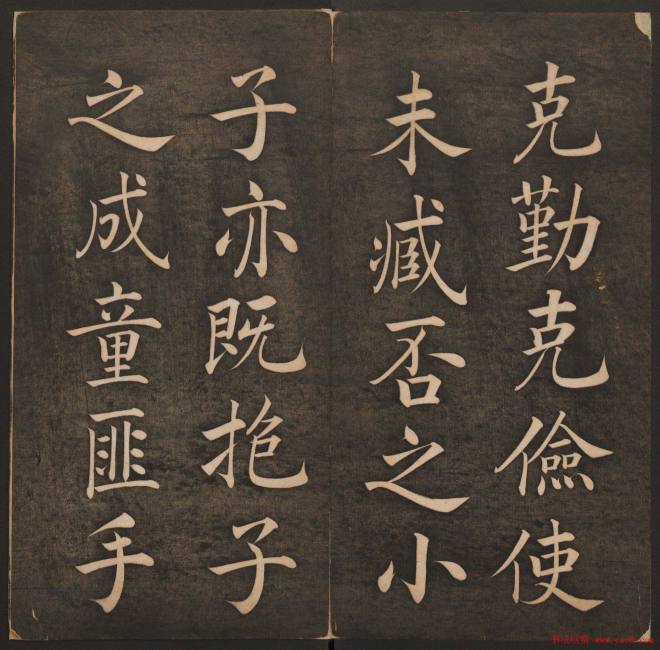 克勤克儉使
未臧否之小
子亦既抱子
之成童匪手